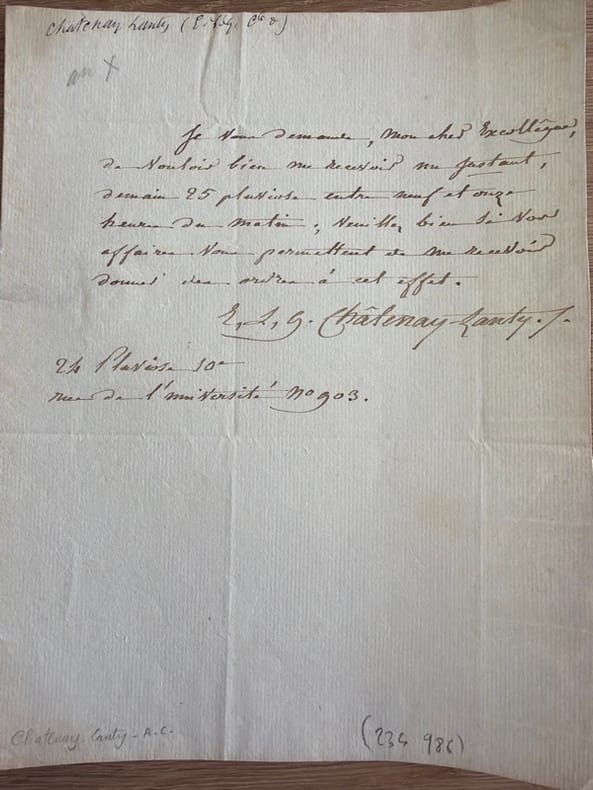 Chatenay Lanty (E. L. G. Cte d)
an X
Je vous demande, mon cher Excollégue,
de vouloir bien me recevoir un Instant,
demain 25 pluviose entre neuf et onze
heures du matin ; veuillez bien si vos
affaires vous permettent de me recevoir
donner des ordres à cet effet.
E, L, G. Châtenay-Lanty.
24 Pluviôse 10e
rue de l'université No 903.
Chatenay Lanty - A.C.
(234 986)